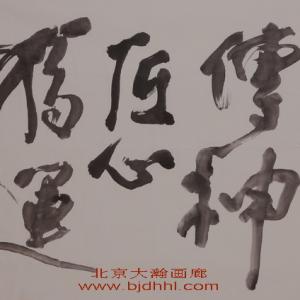 傳神
匠心
獨運
北京大瀚画廊
www.bjdhhl.com